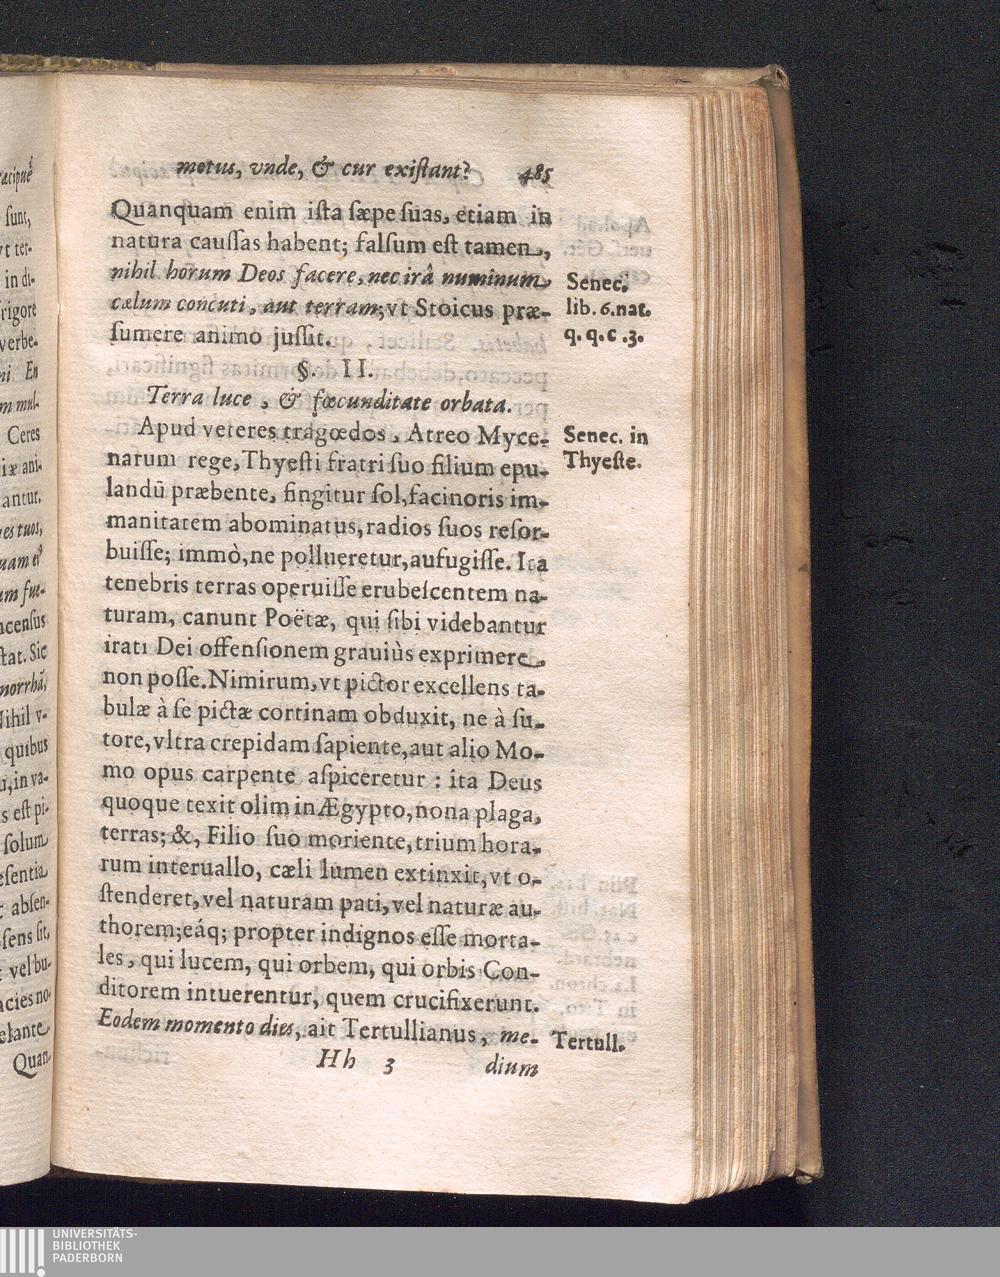 motus, vnde, & cur exiſtant? 485
Quanquam enim iſta ſæpe ſuas, etiam in
natura cauſſas habent; falſum eſt tamen,
nihil horum Deos facere, nec irâ numinum
cælum concuti, aut terram; vt Stoicus præ-
ſumere animo juſſit.
Senec.
lib. 6. nat.
q. q. c. 3.
§. II.
Terra luce, & fœcunditate orbata.
Apud veteres tragœdos, Atreo Myce-
narum rege, Thyeſti fratri ſuo filium epu-
landū præbente, fingitur ſol, facinoris im-
manitatem abominatus, radios ſuos reſor-
buiſſe; immò, ne pollueretur, aufugiſſe. Ita
tenebris terras operuiſſe erubeſcentem na-
turam, canunt Poëtæ, qui ſibi videbantur
irati Dei offenſionem grauiùs exprimere
non poſſe. Nimirum, vt pictor excellens ta-
bulæ à ſe pictæ cortinam obduxit, ne à ſu-
tore, vltra crepidam ſapiente, aut alio Mo-
mo opus carpente aſpiceretur : ita Deus
quoque texit olim in Ægypto, nona plaga,
terras; &, Filio ſuo moriente, trium hora-
rum interuallo, cæli lumen extinxit, vt o-
ſtenderet, vel naturam pati, vel naturæ au-
thorem; eáq; propter indignos eſſe morta-
les, qui lucem, qui orbem, qui orbis Con-
ditorem intuerentur, quem crucifixerunt.
Eodem momento dies, ait Tertullianus, me-
Senec. in
Thyeſte.
Tertull.
Hh 3 dium
ſunt,
vt ter-
in di-
rigore
verbe-
ni En
m mul-
Ceres
iæ ani-
antur.
es tuos,
um fue-
ncenſus
ſtat. Sic
Nihil v-
quibus
in va-
s eſt pi-
ſolum
eſentia
abſen-
ſens ſit,
vel bu-
acies no-
Quan-
UNIVERSITÄTS-
BIBLIOTHEK
PADERBORN